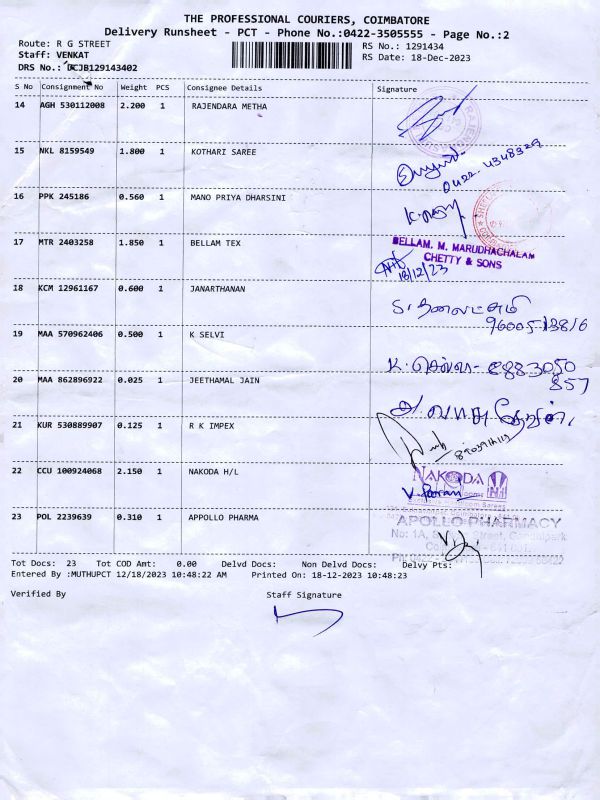 THE PROFESSIONAL COURIERS, COIMBATORE
Delivery Runsheet - PCT - Phone No.:0422-3505555 - Page No.:2
Route: R G STREET RS No.: 1291434
Staff: VENKAT RS Date: 18-Dec-2023
DRS No.: DCJB129143402
S No Consignment No Weight PCS Consignee Details Signature
14 AGH 530112008 2.200 1 RAJENDARA METHA
15 NKL 8159549 1.800 1 KOTHARI SAREE
0422-4348329
16 PPK 245186 0.560 1 MANO PRIYA DHARSINI
17 MTR 2403258 1.850 1 BELLAM TEX
BELLAM. M. MARUDHACHALAM
CHETTY & SONS
18/12/23
18 KCM 12961167 0.600 1 JANARTHANAN
96005-13816
19 MAA 570962406 0.500 1 K SELVI
8883050
857
20 MAA 862896922 0.025 1 JEETHAMAL JAIN
21 KUR 530889907 0.125 1 R K IMPEX
22 CCU 100924068 2.150 1 NAKODA H/L
NAKODA
23 POL 2239639 0.310 1 APPOLLO PHARMA
APOLLO PHARMACY
Tot Docs: 23 Tot COD Amt: 0.00 Delvd Docs: Non Delvd Docs: Delvy Pts:
Entered By :MUTHUPCT 12/18/2023 10:48:22 AM Printed On: 18-12-2023 10:48:23
Verified By Staff Signature